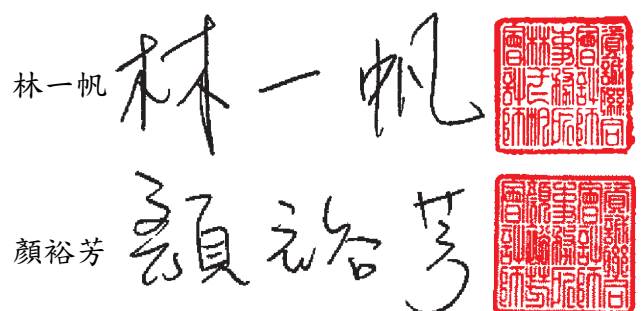 林一帆 林一帆
資誠聯合
會計師
事務所
林一帆
會計師
顏裕芳 顏裕芳
資誠聯合
會計師
事務所
顏裕芳
會計師